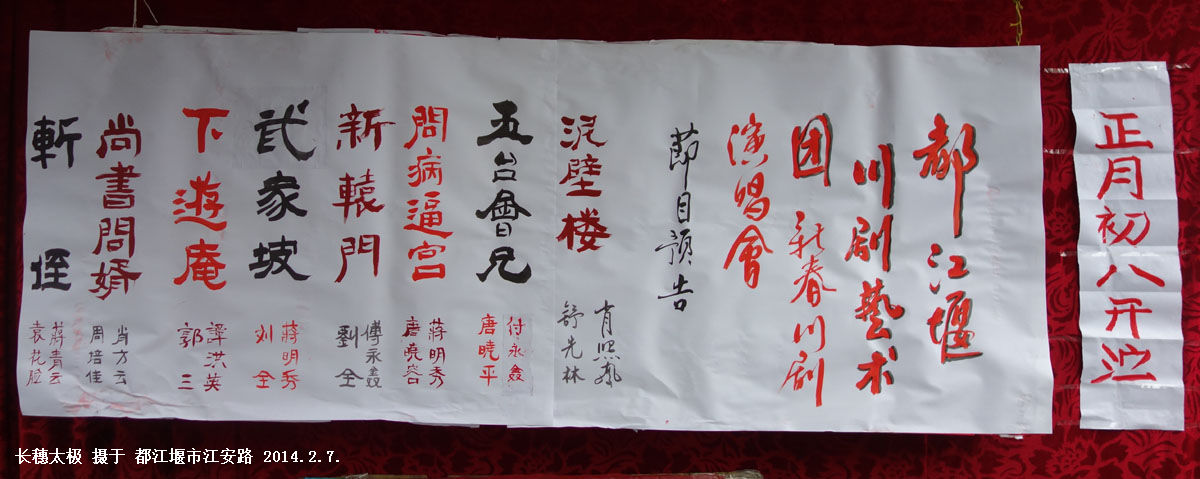 正月初八开
都江堰
川剧藝术
团 新春川剧
演唱會
節目预告
泥壁楼
肖熙凤
舒先林
五台會兄
付永鑫
唐曉平
問病逼宫
蒋明秀
唐曉容
新轅門
傅永鑫
劉全
武家坡
蒋明秀
刘全
下遊庵
譚洪英
郭三
尚書問婿
肖方云
周培佳
斬侄
蒋青云
袁花脸
长穗太极 摄于 都江堰市江安路 2014.2.7.